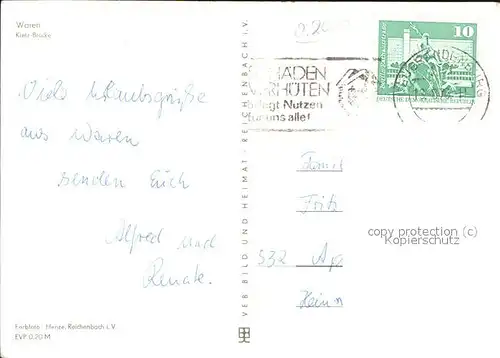 Waren
Kietz-Brücke
0,20
10
SCHÄDEN
VERHÜTEN
bringt Nutzen
für uns alle!
NEUBRANDENBURG
Viele Urlaubsgrüße
aus Waren
senden Euch
Alfred und
Renate.
Famil
Fritz
532 Ap
Heinr
VEB BILD UND HEIMAT · REICHENBACH i. V.
copyright (protection c)
Kopierschutz
Farbfoto: Reichenbach i. V.
EVP 0,20 M